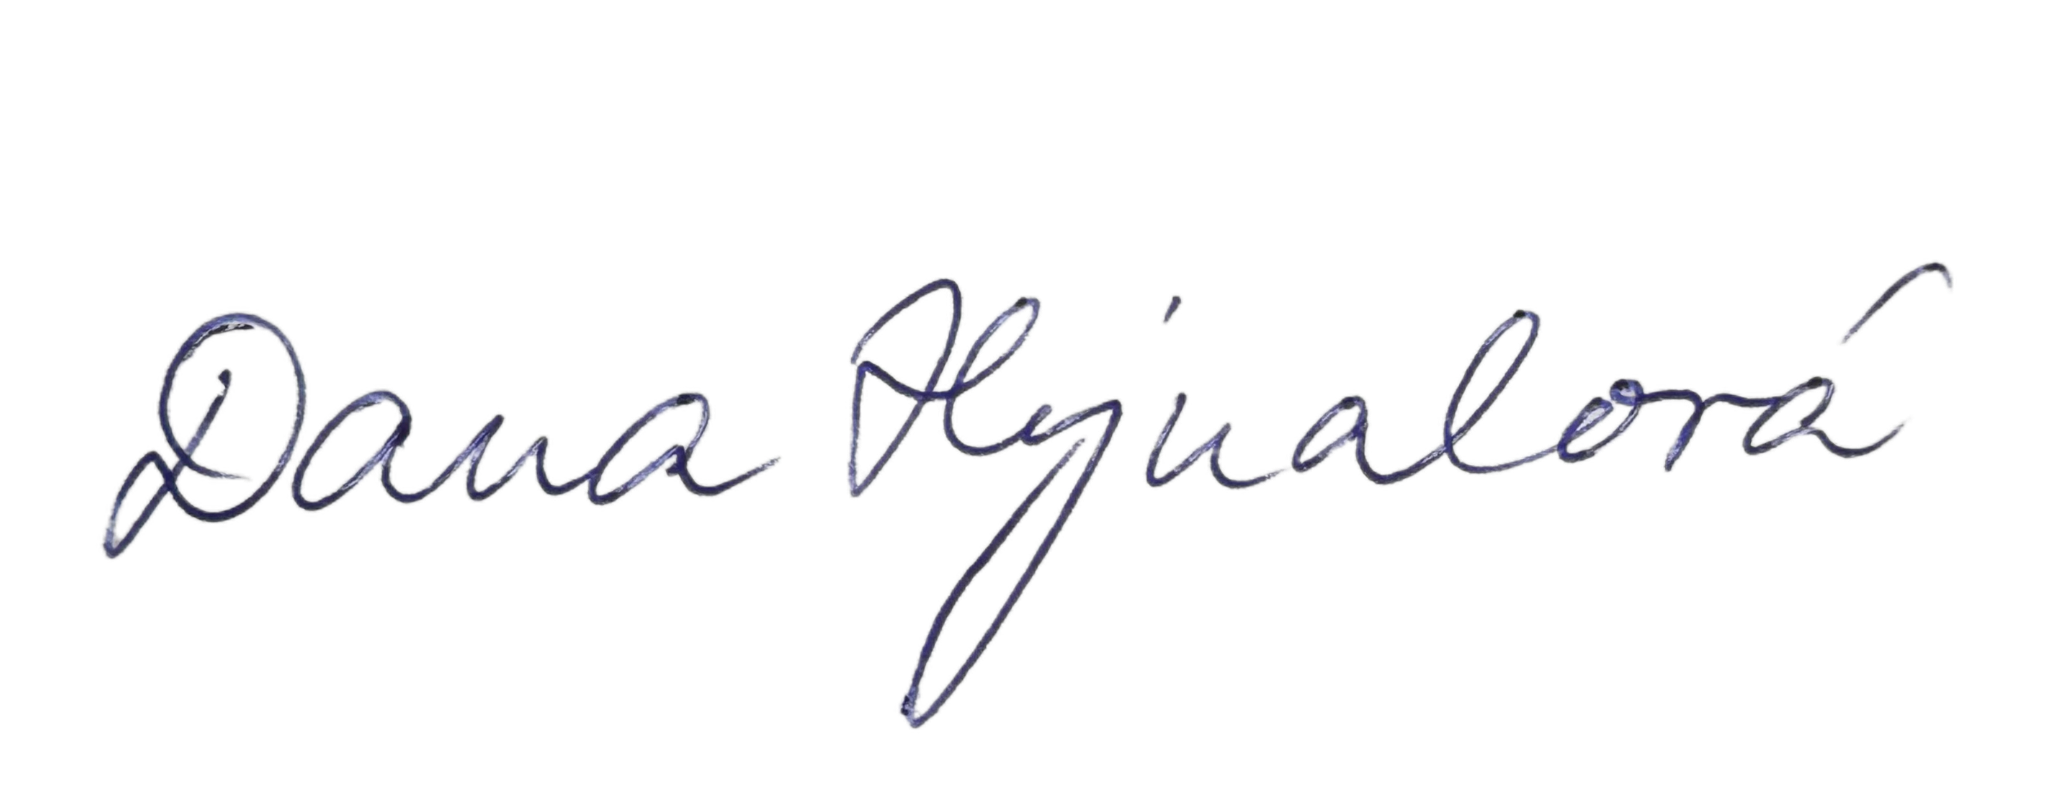 Dana Hejnalová